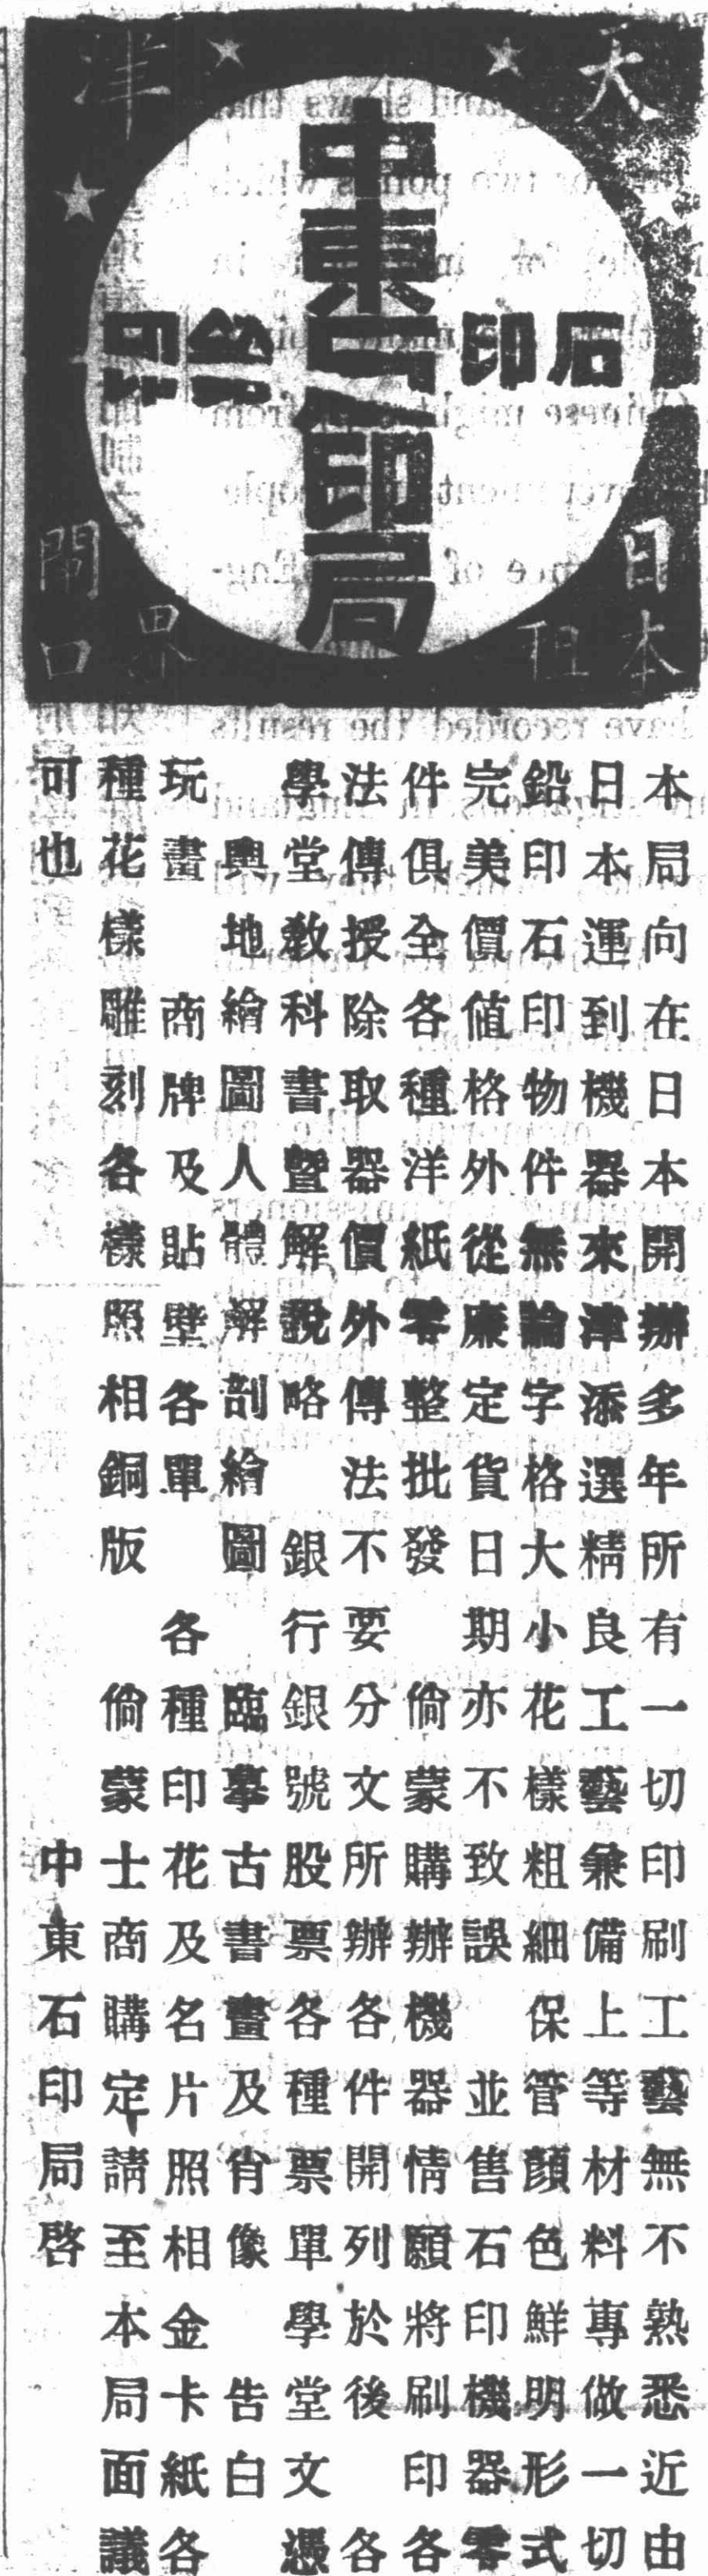 天津
中東石印局
石印
鉛印
日本租界
閘口
本局向在日本開辦多年所有一切印刷工藝無不熟悉近由
日本運到機器來津添選精良工藝兼備上等材料專做一切
鉛印石印物件無論字格大小花樣粗細 保管顏色鮮明形式
完美價值格外從廉定貨日期亦不致誤 並售石印機器零
件俱全各種洋紙零整批發 倘蒙購辦機器情願將刷印各
法傳授除取器價外傳法不要分文所辦各件開列於後 各
學堂教科書暨解說略 銀行銀號股票各種票單 學堂文憑
輿地繪圖人體解剖繪圖 臨摹古書畫及肖像 告白
玩畫 商牌及貼壁各單 各種印花及名片照相金卡紙各
種花樣雕刻各樣照相銅版 倘蒙士商購定請至本局面議
可也 中東石印局啓